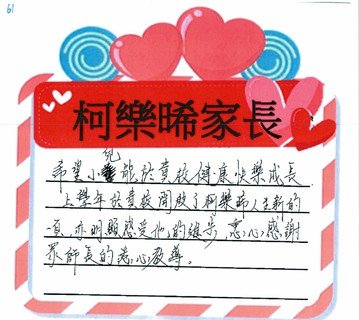 61
柯樂晞家長
希望小兒能於貴校健康快樂成長
上學年於貴校開啟了柯樂晞人生新的
一頁,亦明顯感受他的進步,衷心感謝
眾師長的悉心教導。